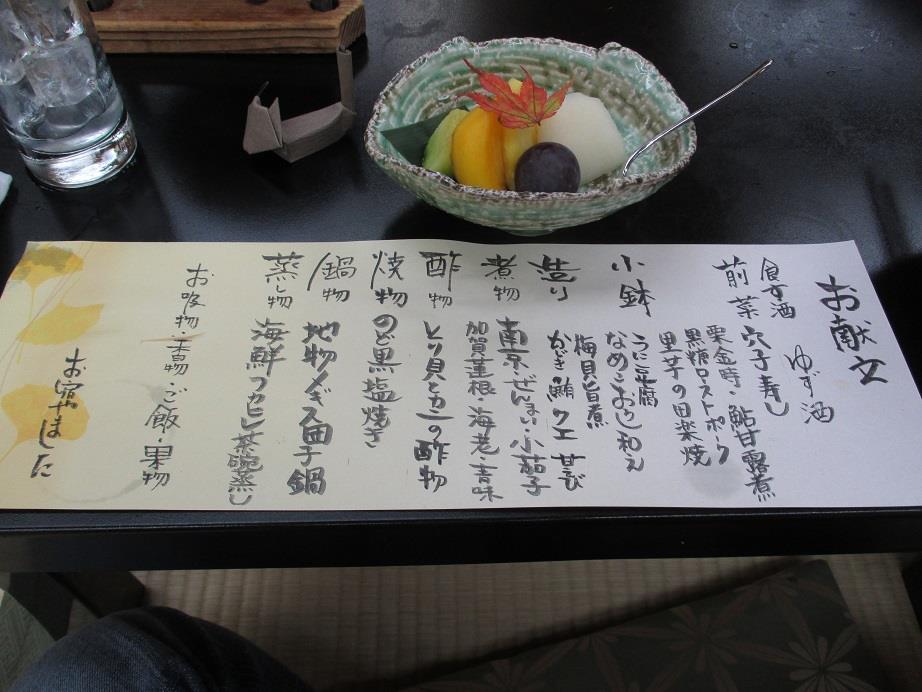 お献立
食す酒 ゆず酒
前菜 穴子寿し
栗金時・鮎甘露煮
黒糖ローストポーク
里芋の田楽焼
小鉢 なめこおろし和え
うに豆腐
梅貝旨煮
造り かじき鮪 クエ 甘えび
煮物 南京・ぜんまい・小茄子
加賀蓮根・海老・青味
酢物 とり貝とカニの酢物
焼物 のど黒塩焼き
鍋物 地物メギス団子鍋
蒸し物 海鮮フカヒレ茶碗蒸し
お吸物・香物・ご飯・果物
お宿やました